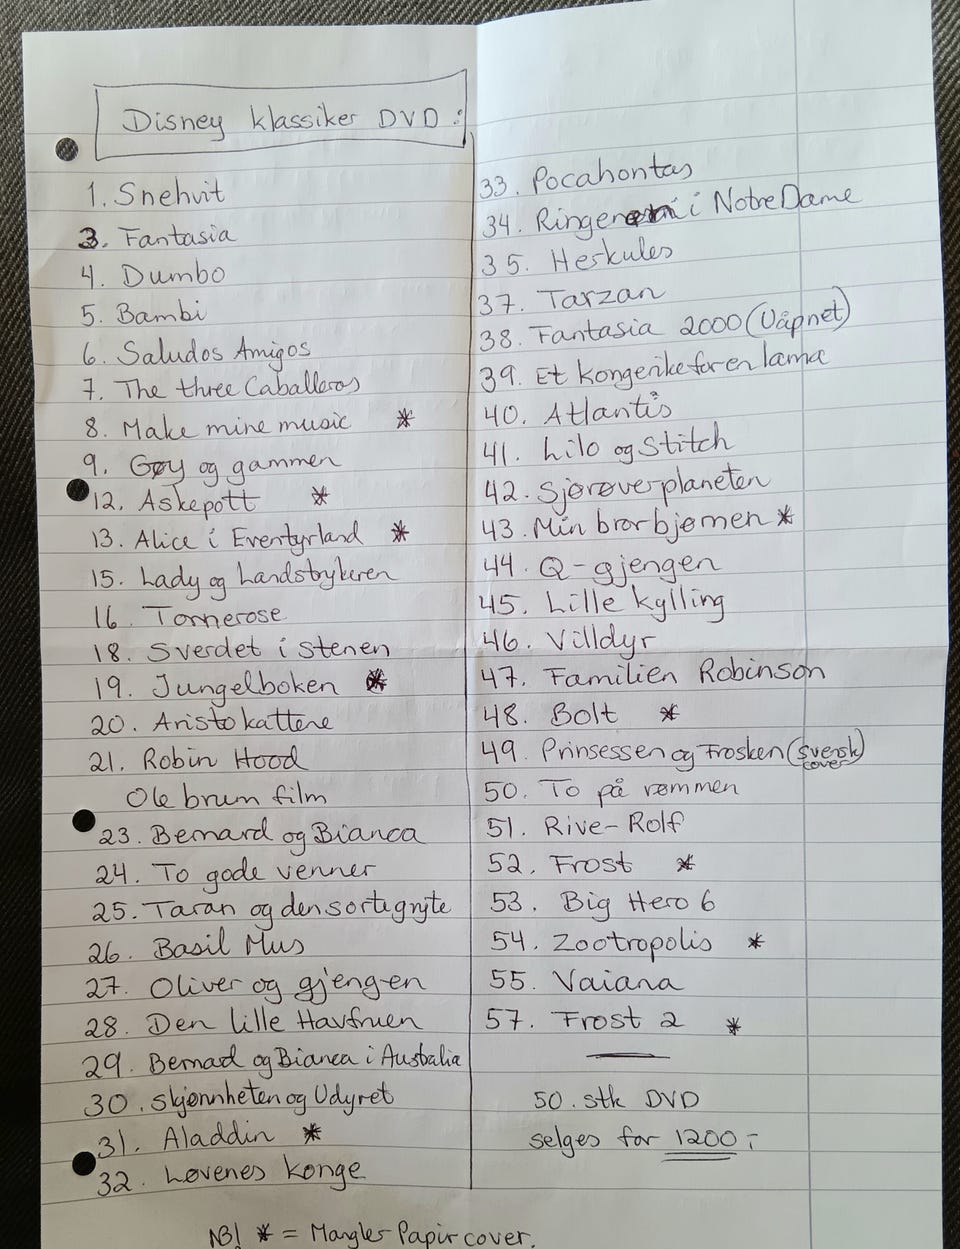 Disney klassiker DVD:
1. Snehvit
3. Fantasia
4. Dumbo
5. Bambi
6. Saludos Amigos
7. The three Caballeros
8. Make mine music *
9. Gøy og gammen
12. Askepott *
13. Alice i Eventyrland *
15. Lady og Landstrykeren
16. Tornerose
18. Sverdet i stenen
19. Jungelboken *
20. Aristokattene
21. Robin Hood
Ole brum film
23. Bernard og Bianca
24. To gode venner
25. Taran og den sorte gryte
26. Basil Mus
27. Oliver og gjengen
28. Den lille Havfruen
29. Bernad og Bianca i Australia
30. Skjønnheten og Udyret
31. Aladdin *
32. Løvenes Konge
33. Pocahontas
34. Ringeren i Notre Dame
35. Herkules
37. Tarzan
38. Fantasia 2000 (Uåpnet)
39. Et kongerike for en lama
40. Atlantis
41. Lilo og Stitch
42. Sjørøverplaneten
43. Min bror bjørnen *
44. Q-gjengen
45. Lille kylling
46. Villdyr
47. Familien Robinson
48. Bolt *
49. Prinsessen og Frosken (svensk
cover)
50. To på rømmen
51. Rive-Rolf
52. Frost *
53. Big Hero 6
54. Zootropolis *
55. Vaiana
57. Frost 2 *
50. stk DVD
selges for 1200,-
NB! * = Mangler Papir cover.